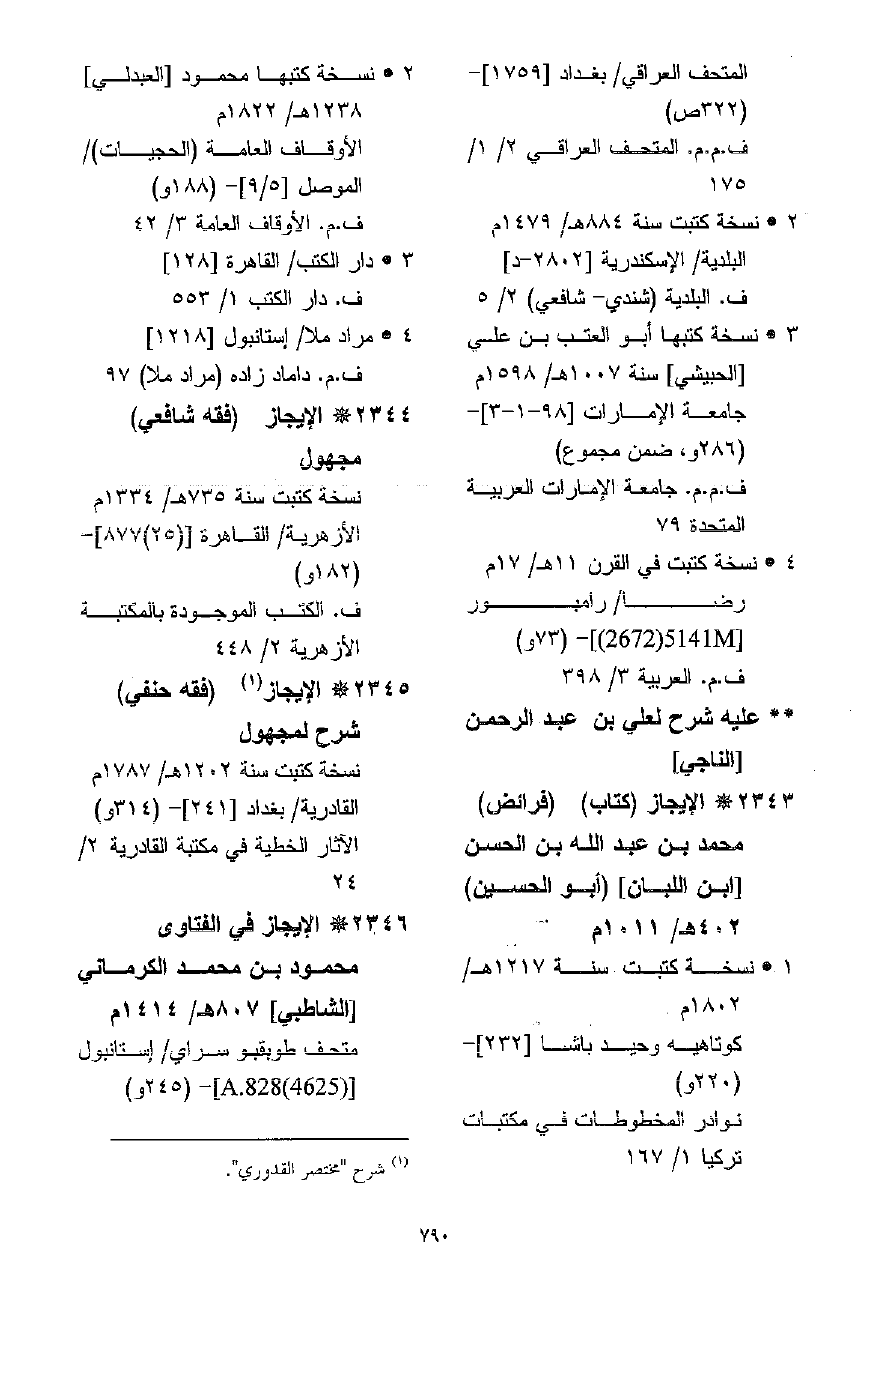 المتحف العراقي/ بغداد [١٧٥٩]-
(٣٢٢ص)
ف.م.م. المتحف العراقي ٢/ ١/
١٧٥
٢ * نسخة كتبت سنة ٨٨٤هـ/ ١٤٧٩م
البلدية/ الإسكندرية [٢٨٠٢-د]
ف. البلدية (شندي- شافعي) ٢/ ٥
٣ * نسخة كتبها أبو العتب بن علي
[الحبيشي] سنة ١٠٠٧هـ/ ١٥٩٨م
جامعة الإمارات [٩٨-١-٣]-
(٢٨٦و، ضمن مجموع)
ف.م.م. جامعة الإمارات العربية
المتحدة ٧٩
٤ * نسخة كتبت في القرن ١١هـ/ ١٧م
رضا/ رامبور
[5141M(2672)]- (٧٣و)
ف.م. العربية ٣/ ٣٩٨
** عليه شرح لعلي بن عبد الرحمن
[الناجي]
٢٣٤٣* الإيجاز (كتاب) (فرائض)
محمد بن عبد الله بن الحسن
[ابن اللبان] (أبو الحسين)
٤٠٢هـ/ ١٠١١م
١ * نسخة كتبت سنة ١٢١٧هـ/
١٨٠٢م
كوتاهيه وحيد باشا [٢٣٢]-
(٢٢٠و)
نوادر المخطوطات في مكتبات
تركيا ١/ ١٦٧
٢ * نسخة كتبها محمود [العبدلي]
١٢٣٨هـ/ ١٨٢٢م
الأوقاف العامة (الحجيات)/
الموصل [٩/٥]- (١٨٨و)
ف.م. الأوقاف العامة ٣/ ٤٢
٣ * دار الكتب/ القاهرة [١٢٨]
ف. دار الكتب ١/ ٥٥٣
٤ * مراد ملا/ إستانبول [١٢١٨]
ف.م. داماد زاده (مراد ملا) ٩٧
٢٣٤٤* الإيجاز (فقه شافعي)
مجهول
نسخة كتبت سنة ٧٣٥هـ/ ١٣٣٤م
الأزهرية/ القاهرة [(٢٥)٨٧٧]-
(١٨٢و)
ف. الكتب الموجودة بالمكتبة
الأزهرية ٢/ ٤٤٨
٢٣٤٥* الإيجاز(١) (فقه حنفي)
شرح لمجهول
نسخة كتبت سنة ١٢٠٢هـ/ ١٧٨٧م
القادرية/ بغداد [٢٤١]- (٣١٤و)
الآثار الخطية في مكتبة القادرية ٢/
٢٤
٢٣٤٦* الإيجاز في الفتاوى
محمود بن محمد الكرماني
[الشاطبي] ٨٠٧هـ/ ١٤١٤م
متحف طوبقبو سراي/ إستانبول
[A.828(4625)]- (٢٤٥و)
(١) شرح "مختصر القدوري".
٧٩٠